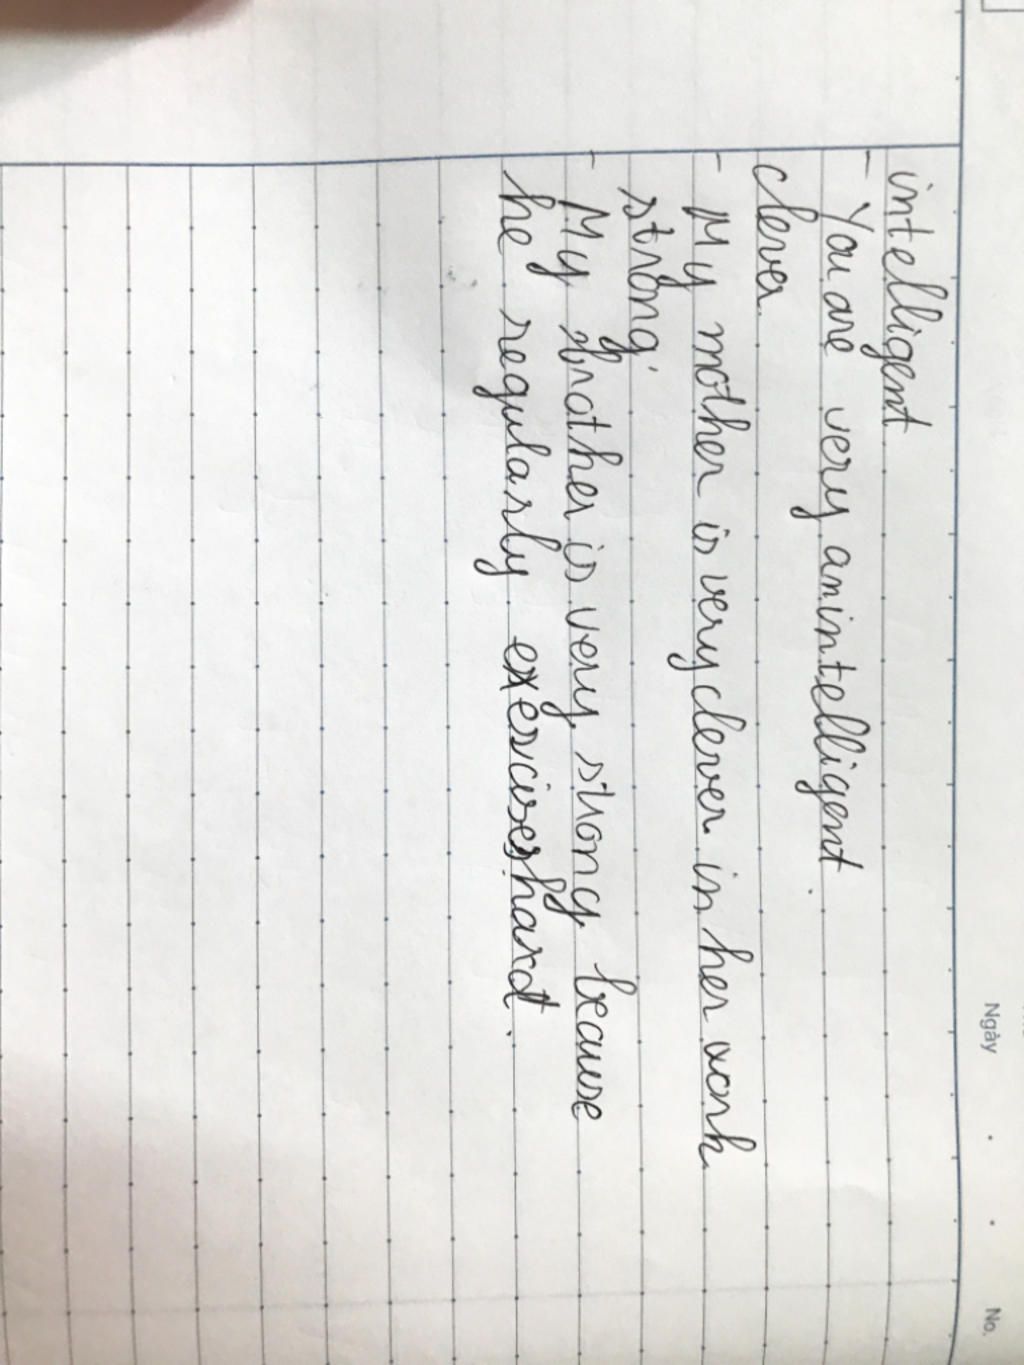 Ngày
No.
intelligent
- You are very an intelligent.
clever
- My mother is very clever in her work
strong
- My brother is very strong because
he regularly exercises hard.